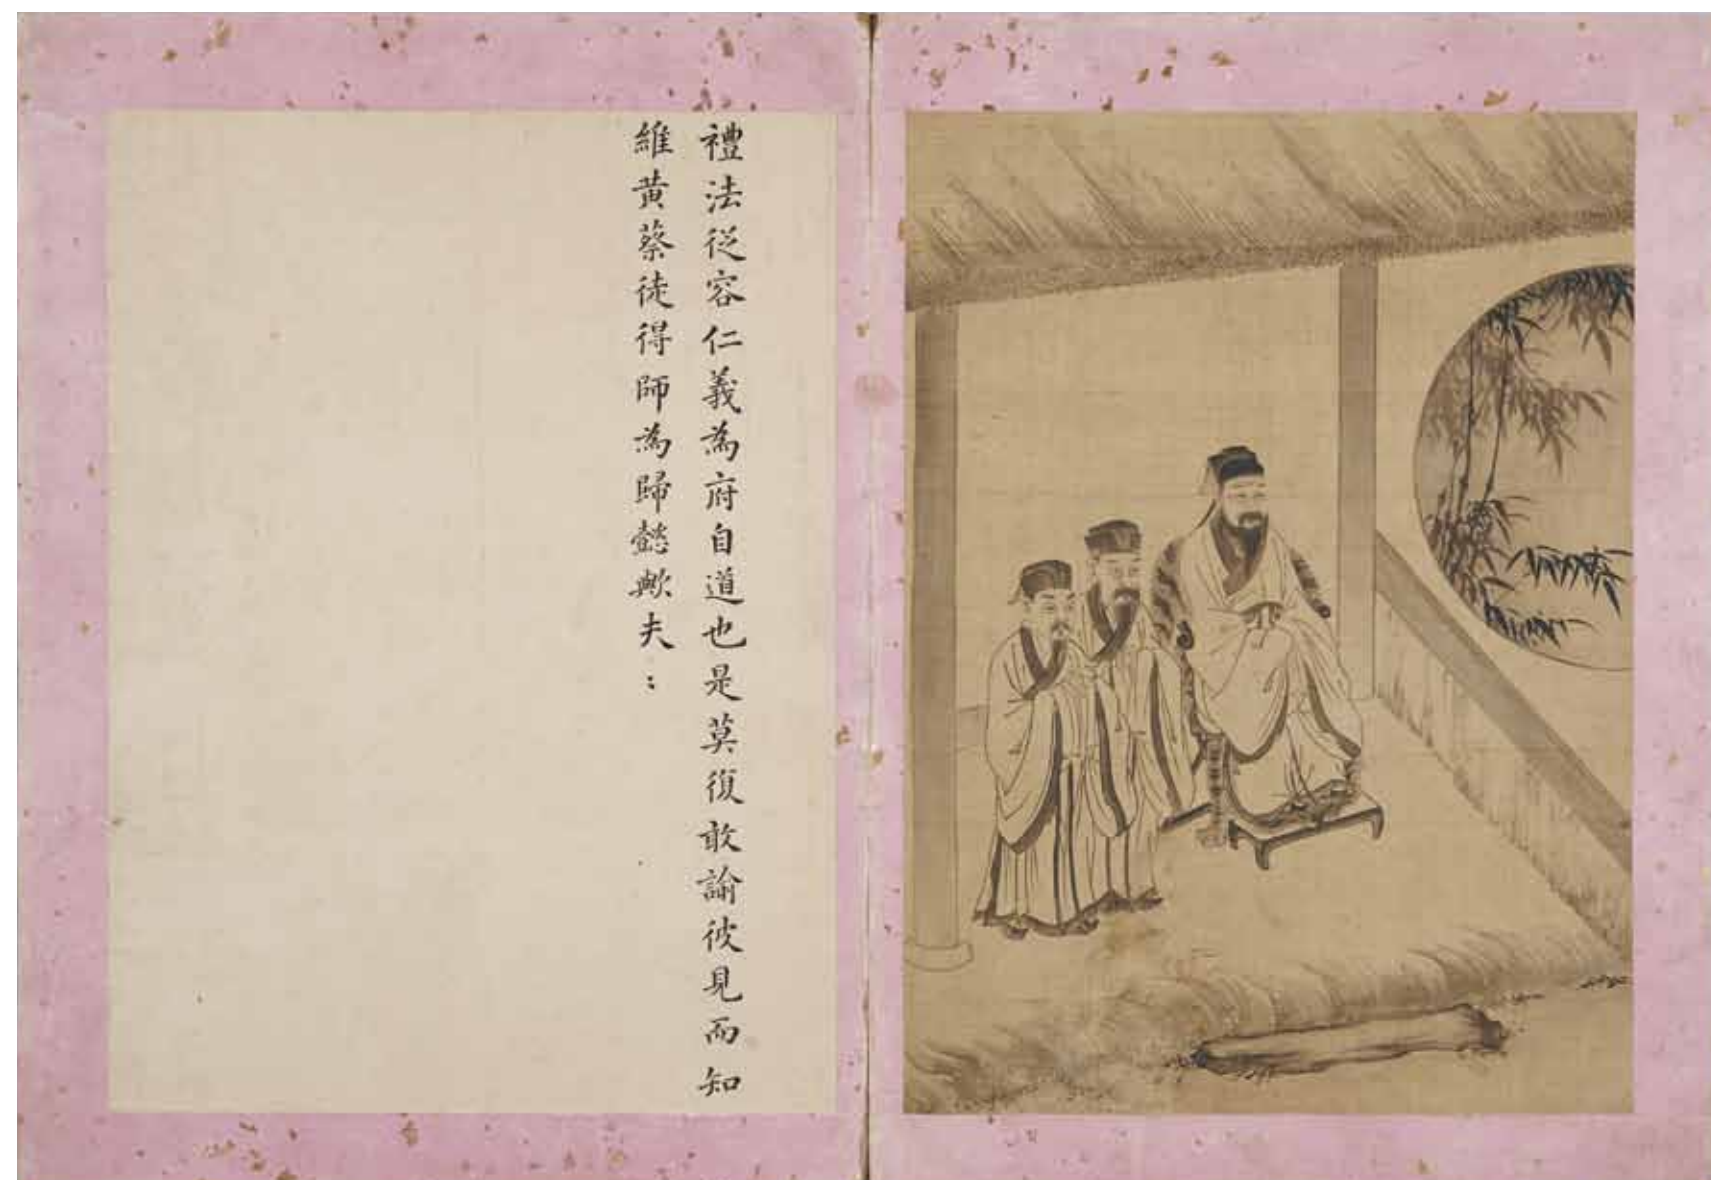 禮法從容仁義為府自道也是莫復敢諭彼見而知
維黄蔡徒得師為歸懿歟夫：